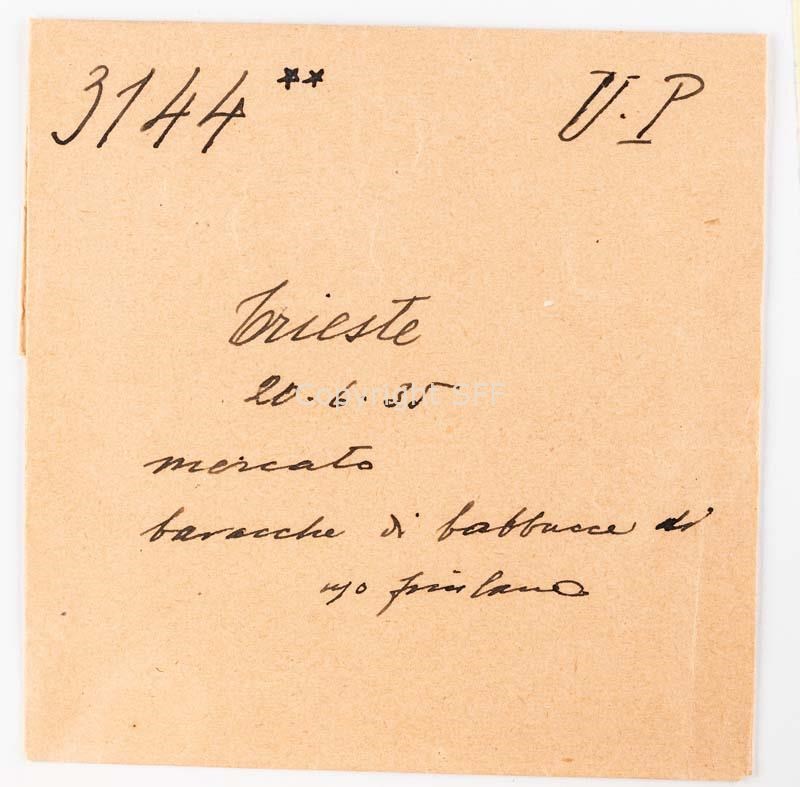 3144** U.P
Trieste
20.6.35
mercato
baracche di babbucce di
uso friulano
Copyright SFF